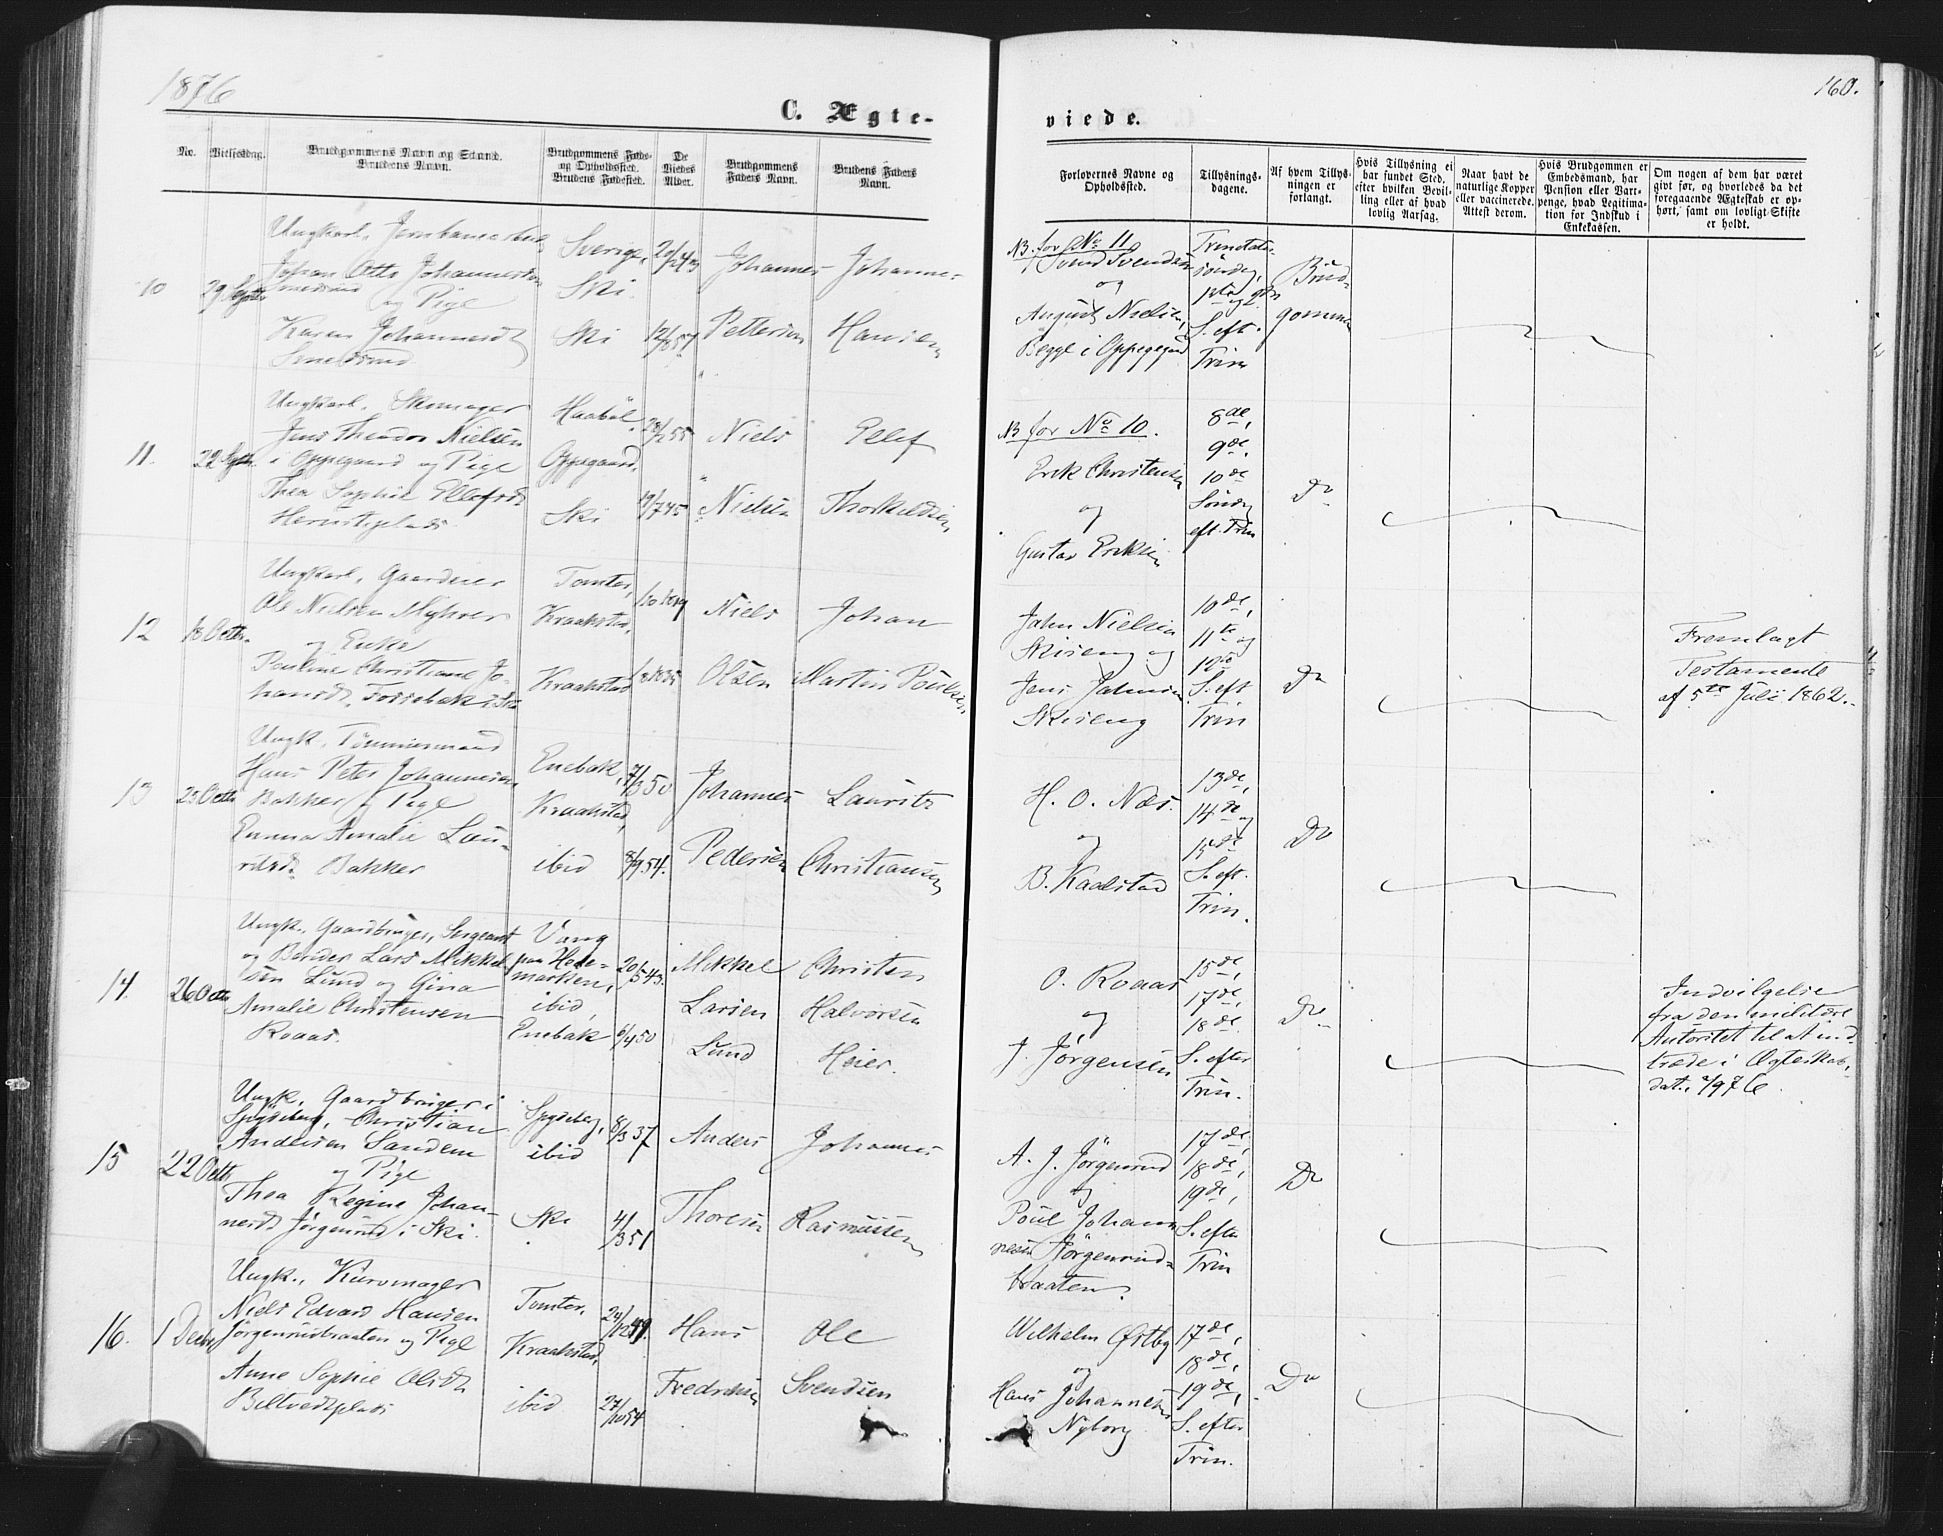 1876
160.
C. Ægte-
viede.
No.
Vielsesdag.
Brudgommens Navn og Stand.
Brudens Navn.
Brudgommens Føde-
og Opholdssted.
Brudens Fødested.
De
Viedes
Alder.
Brudgommens
Faders Navn.
Brudens Faders
Navn.
Forlovernes Navne og
Opholdssted.
Tillysnings-
dagene.
Af hvem Tillys-
ningen er
forlangt.
Hvis Tillysning ei
har fundet Sted,
efter hvilken Bevil-
ling eller af hvad
lovlig Aarsag.
Naar havt de
naturlige Kopper
eller vaccinerede.
Attest derom.
Hvis Brudgommen er
Embedsmand, har
Pension eller Vart-
penge, hvad Legitima-
tion for Indskud i
Enkekassen.
Om nogen af dem har været
gift før, og hvorledes da det
foregaaende Ægteskab er op-
hørt, samt om lovligt Skifte
er holdt.
10
29 Septbr
Ungkarl,
Johan Otto Johannesen
og Pige
Karen Johannesd.
Smedsrud
Sverige,
Ski.
Ski
Johannes
Pettersen
Johannes
Hansen
NB. for No 11
Svend Svendsen
og
August Nielsen,
Begge i Oppegaard
Trinitatis
søndag,
1ste og 2den
S. eft.
Trin
Brud-
gommen
11.
22 Septbr.
Ungkarl, Skomager
Jens Theodor Nielsen
i Oppegaard og Pige
Thea Sophie Ellefsd.
Haabøl,
Oppegaard.
Ski
28/2 55
19/7 45
Niels
Nielsen
Ellef
Thorkeldsen
NB for No 10.
Erik Christensen
og
Gustav Eriksen
8de,
9de,
10de
Søndag
eft. Trin
Do
12
18 Octbr.
Ungkarl, Gaardeier
Ole Nielsen Myhrer
og Enke
Pauline Christiane Jo-
hansd.
Tomter,
Kraakstad,
Kraakstad
Niels
Olsen
Johan
Martin Poulsen
John Nielsen
Skiseng og
Jens Johnsen
Skiseng
10de,
11te og
12te
S. eft
Trin
Do
Fremlagt
Testamente
af 5te Juli 1862.
13
23 Octbr
Ungk. Tømmermand
Hans Peter Johannesen
Bakker og Pige
Emma Amalie Lau-
ritzd. Bakker
Enebak,
Kraakstad,
ibid
7/3 50
8/9 54.
Johannes
Pedersen
Lauritz
Christiansen
H. O. Næs.
og
B. Kaalstad
13de,
14de og
15de
S. eft.
Trin.
Do
14.
26 Octb
Ungk., Gaardbruger, Sergeant
og Bonden Lars Mikkel-
sen Lund og Gina
Amalie Christensen
Roaas.
Vang
paa Hede-
marken,
ibid,
Enebak
20/5 43.
6/4 50
Mikkel
Larsen
Lund
Christen
Halvorsen
Heier.
O. Roaas
og
J. Jørgensen
15de,
17de,
18de.
S. efter
Trin.
Do
Indvilgelse
fra den militære
Autoritet til at ind-
træde i Ægteskab,
dat. 2/9 76
15
22 Octb.
Ungk. Gaardbruger i
Spydeberg, Christian
Andersen Sandem
og Pige
Thea Regine Johan-
nesd. Jørgenrud i Ski.
Spydeberg,
ibid
Ski
8/3 37
4/3 51
Anders
Thoresen
Johannes
Rasmussen
A. J. Jørgenrud
og
Poul Johan-
nesen Jørgenrud-
braaten.
17de,
18de,
19de,
S. efter
Trin
Do
16.
1 Decbr
Ungk., Kurvmager
Niels Edvard Hansen
Jørgenrudbraaten og Pige
Anne Sophie Olsd.
Biltvedtplads
Tomter,
Kraakstad,
ibid
27/10 54
Hans
Fredriksen
Ole
Svendsen
Wilhelm Østby
og
Hans Johannesen
Nyborg
17de,
18de,
19de,
S. efter
Trin.
Do